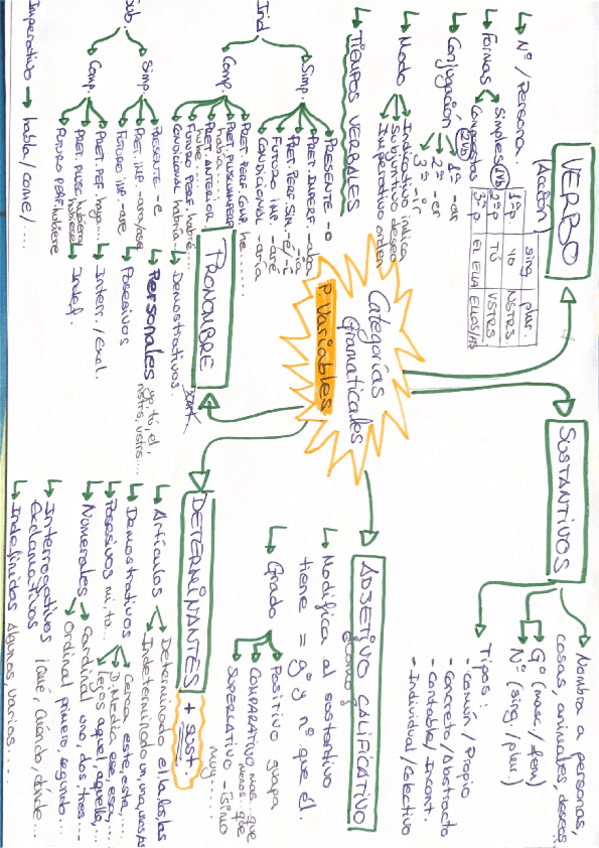 Categorías
Gramaticales
P. Variables
VERBO
(Acción)
sing. plur.
1ªp YO NSTRS
2ªp TÚ VSTRS
3ªp EL ELLA ELLOS/AS
Nº / Persona.
Formas
Simples (1Vb)
Compuestas (2Vb)
Conjugación
1ª -ar
2ª -er
3ª -ir
Modo
Indicativo indica
Subjuntivo deseo
Imperativo orden
TIEMPOS VERBALES
Ind.
Simp.
PRESENTE -o
PRET. IMPERF. -aba -ía
PRET. PERF SIM. -é/-í
FUTURO IMP. -aré
CONDICIONAL -aría
Comp.
PRET. PERF. COMP. he....
PRET. PLUSCUAMPERF había.....
PRET. ANTERIOR hube
FUTURO PERF. habré....
CONDICIONAL habría...
Sub.
Simp.
PRESENTE -e
PRET. IMP. -ara/ase
FUTURO IMP. -are
Comp.
PRET. PERF. haya....
PRET. PLUSC. hubiera hubiese
FUTURO PERF. hubiere
Imperativo habla/come/...
SUSTANTIVOS
Nombra a personas,
cosas, animales, deseos
Gº (masc/fem)
Nº (sing/plur)
Tipos:
- Común/Propio
- Concreto/Abstracto
- Contable/Incont.
- Individual/Colectivo
ADJETIVO CALIFICATIVO
¿cómo?
Modifica al sustantivo
tiene = gº y nº que él.
Grado
Positivo guapa
COMPARATIVO mas que menos.. que
SUPERLATIVO -ísimo
muy.....
DETERMINANTES + sust.
Artículos
Determinado el, la, los, las
Indeterminado un, una, unos/as
Demostrativos
Cerca este, esta, ....
D. Media ese, esa, ....
Lejos aquel, aquella, ...
Posesivos mi, tu...
Numerales
Cardinal uno, dos, tres....
Ordinal primero, segundo...
Interrogativos ¡qué, cuándo, dónde...
Exclamativos
Indefinidos Algunos, varios....
PRONOMBRE
Demostrativos.
Personales yo, tú, él,
nstrs, vstrs...
Posesivos
Interr./Excl.
Indef.